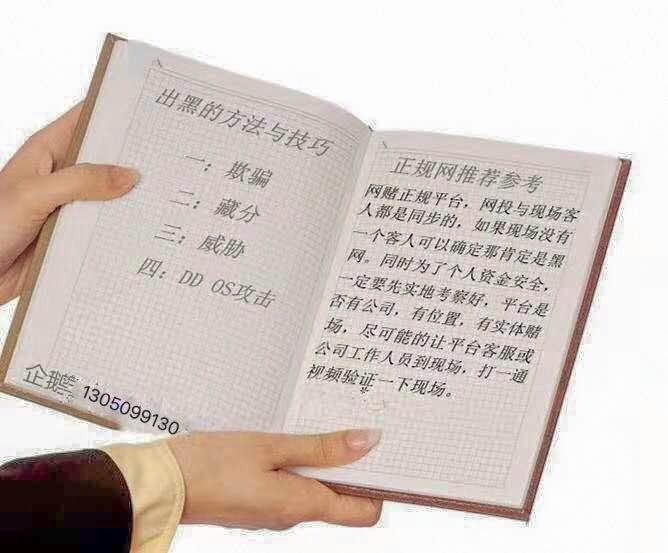 出黑的方法与技巧
一：欺骗
二：藏分
三：威胁
四：DD OS攻击
企鹅
1305099130
正规网推荐参考
网赌正规平台，网投与现场客
人都是同步的，如果现场没有
一个客人可以确定那肯定是黑
网。同时为了个人资金安全，
一定要先实地考察好，平台是
否有公司，有位置，有实体赌
场，尽可能的让平台客服或
公司工作人员到现场，打一通
视频验证一下现场。